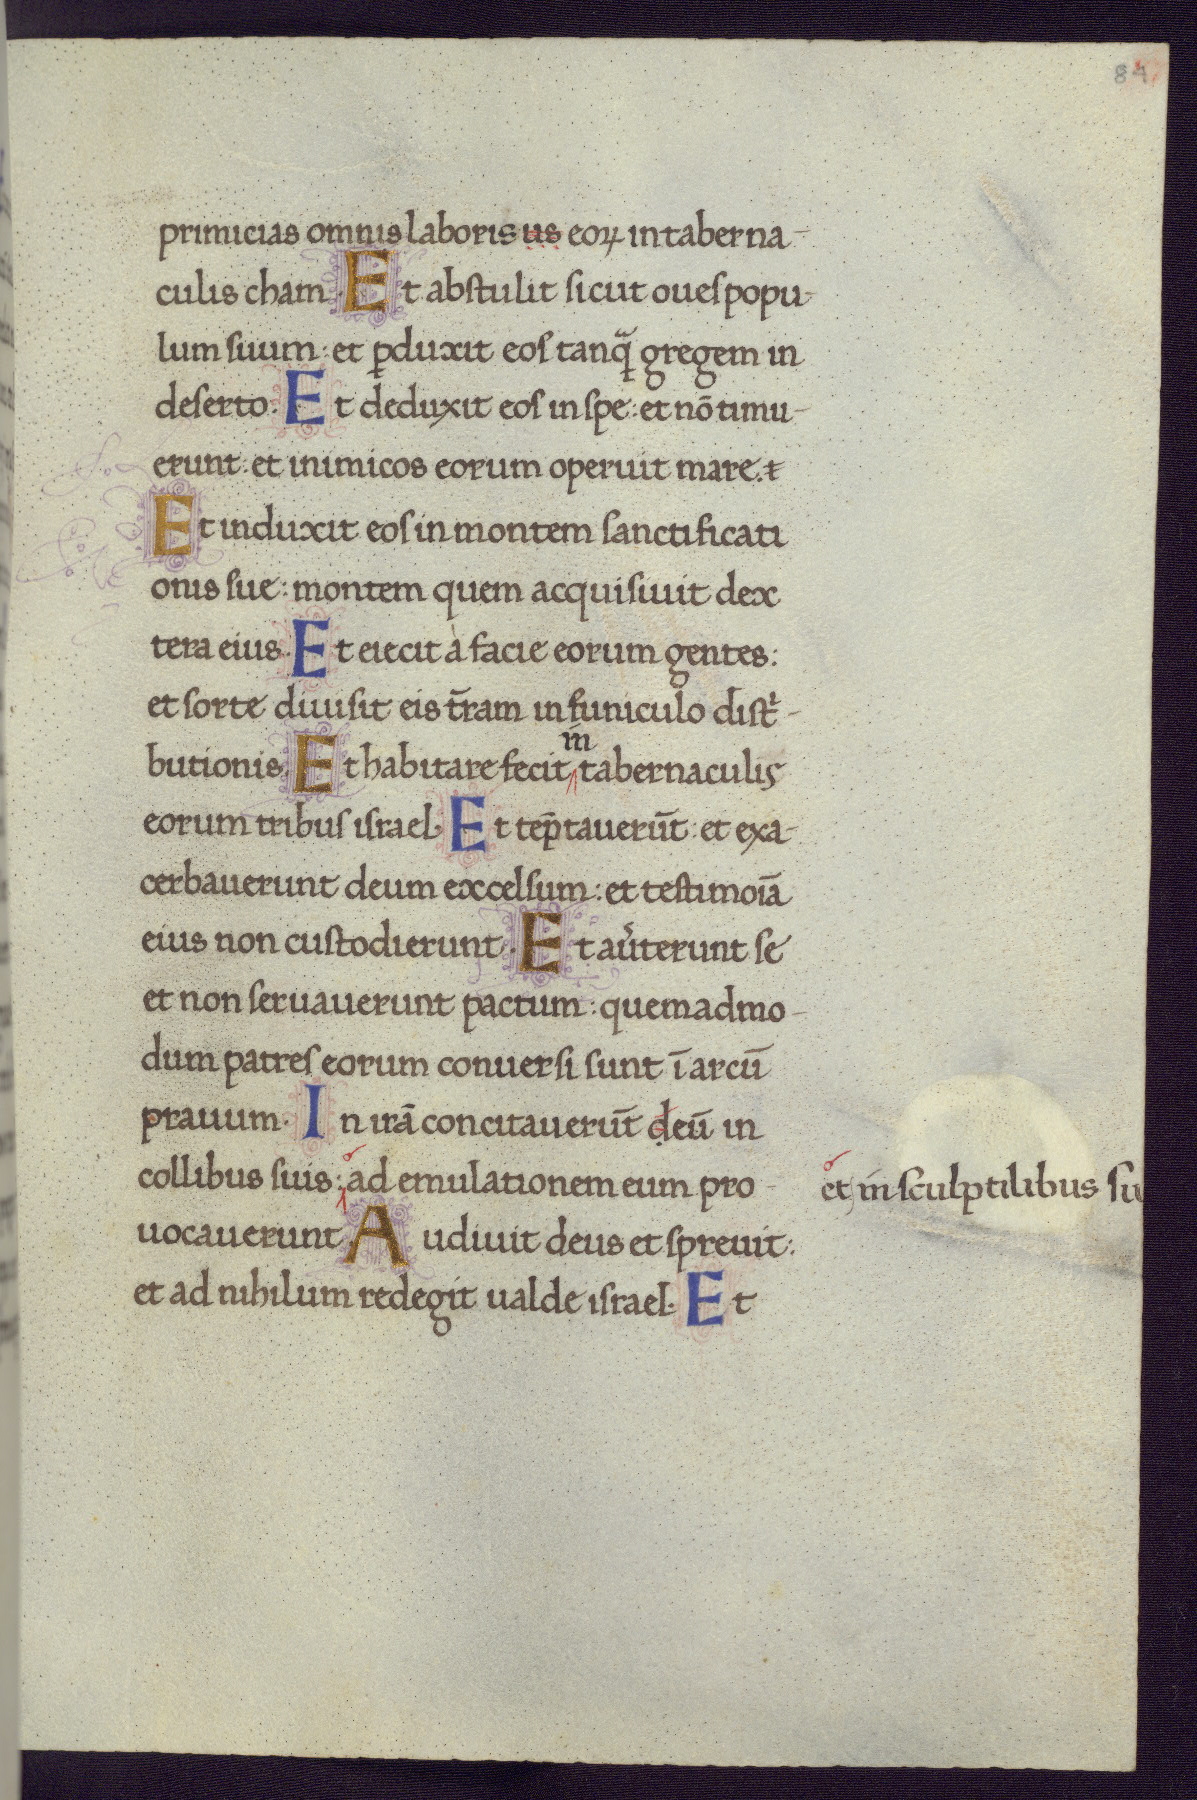 84
primicias omnis laboris us eoꝝ in taberna-
culis cham. Et abstulit sicut oues popu-
lum suum: et ꝑduxit eos tanq̃ gregem in
deserto. Et deduxit eos in spe: et nō timu-
erunt: et inimicos eorum operuit mare. ⁊
Et induxit eos in montem sanctificati
onis sue: montem quem acquisiuit dex
tera eius. Et eiecit à facie eorum gentes:
et sorte diuisit eis t̄ram in funiculo distⁱ-
in
butionis. Et habitare fecit tabernaculis
eorum tribus israel. Et tēptauerūt: et exa-
cerbauerunt deum excelsum: et testimoīa
eius non custodierunt. Et au̇terunt se
et non seruauerunt pactum: quemadmo-
dum patres eorum conuersi sunt ī arcū
prauum. In irā concitauerūt deū in
collibus suis: ad emulationem eum pro-
et in sculptilibus su
uocauerunt. Audiuit deus et spreuit:
et ad nihilum redegit ualde israel. Et